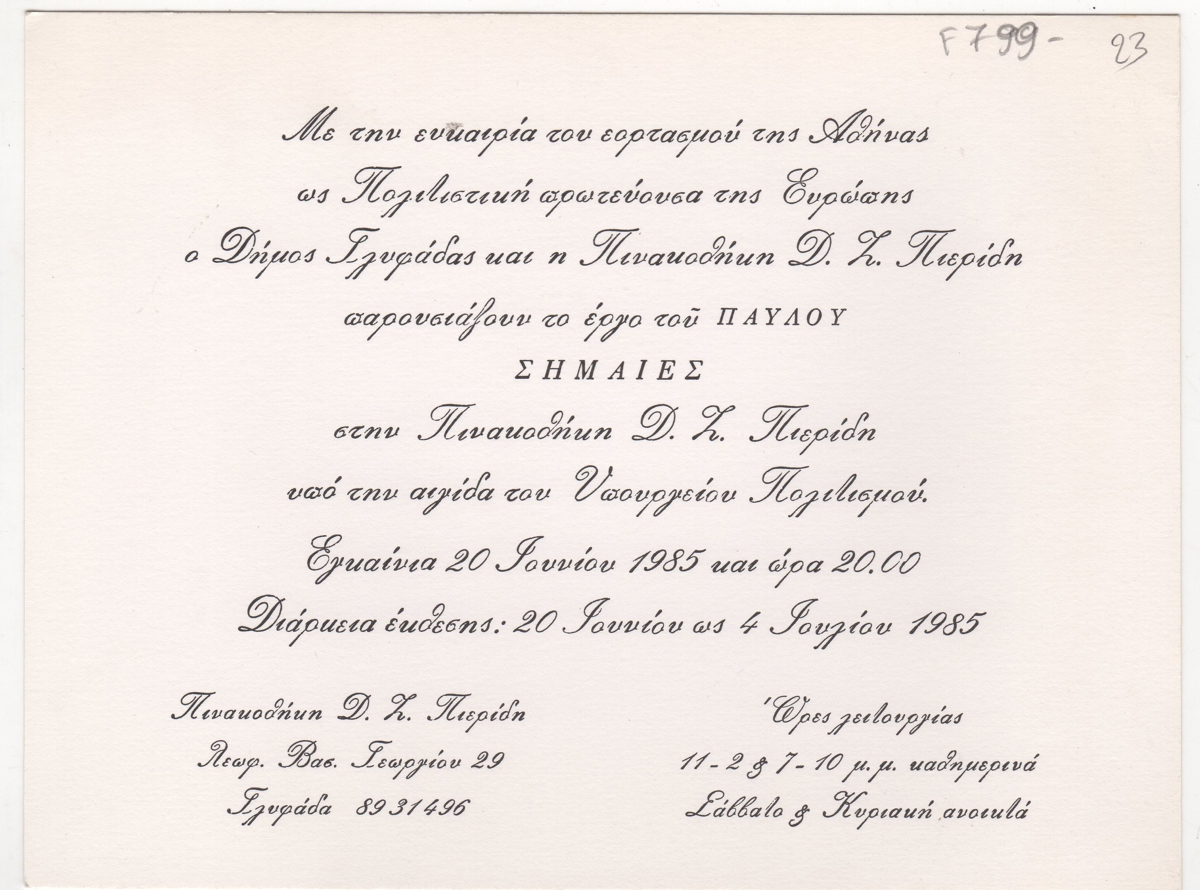 F799- 23
Με την ευκαιρία του εορτασμού της Αθήνας
ως Πολιτιστική πρωτεύουσα της Ευρώπης
ο Δήμος Γλυφάδας και η Πινακοθήκη Δ. Ζ. Πιερίδη
παρουσιάζουν το έργο τοῦ ΠΑΥΛΟΥ
ΣΗΜΑΙΕΣ
στην Πινακοθήκη Δ. Ζ. Πιερίδη
υπό την αιγίδα του Υπουργείου Πολιτισμού.
Εγκαίνια 20 Ιουνίου 1985 και ώρα 20.00
Διάρκεια έκθεσης: 20 Ιουνίου ως 4 Ιουλίου 1985
Πινακοθήκη Δ. Ζ. Πιερίδη
Λεωφ. Βασ. Γεωργίου 29
Γλυφάδα 8931496
Ώρες λειτουργίας
11-2 & 7-10 μ.μ. καθημερινά
Σάββατο & Κυριακή ανοικτά